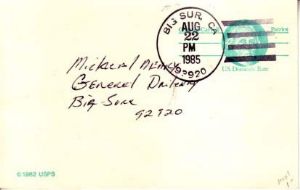 BIG SUR, CA
AUG
22
PM
1985
93920
Patriot
U.S. Domestic Rate
Michael
General Delivery
Big Sur
92920
©1982 USPS